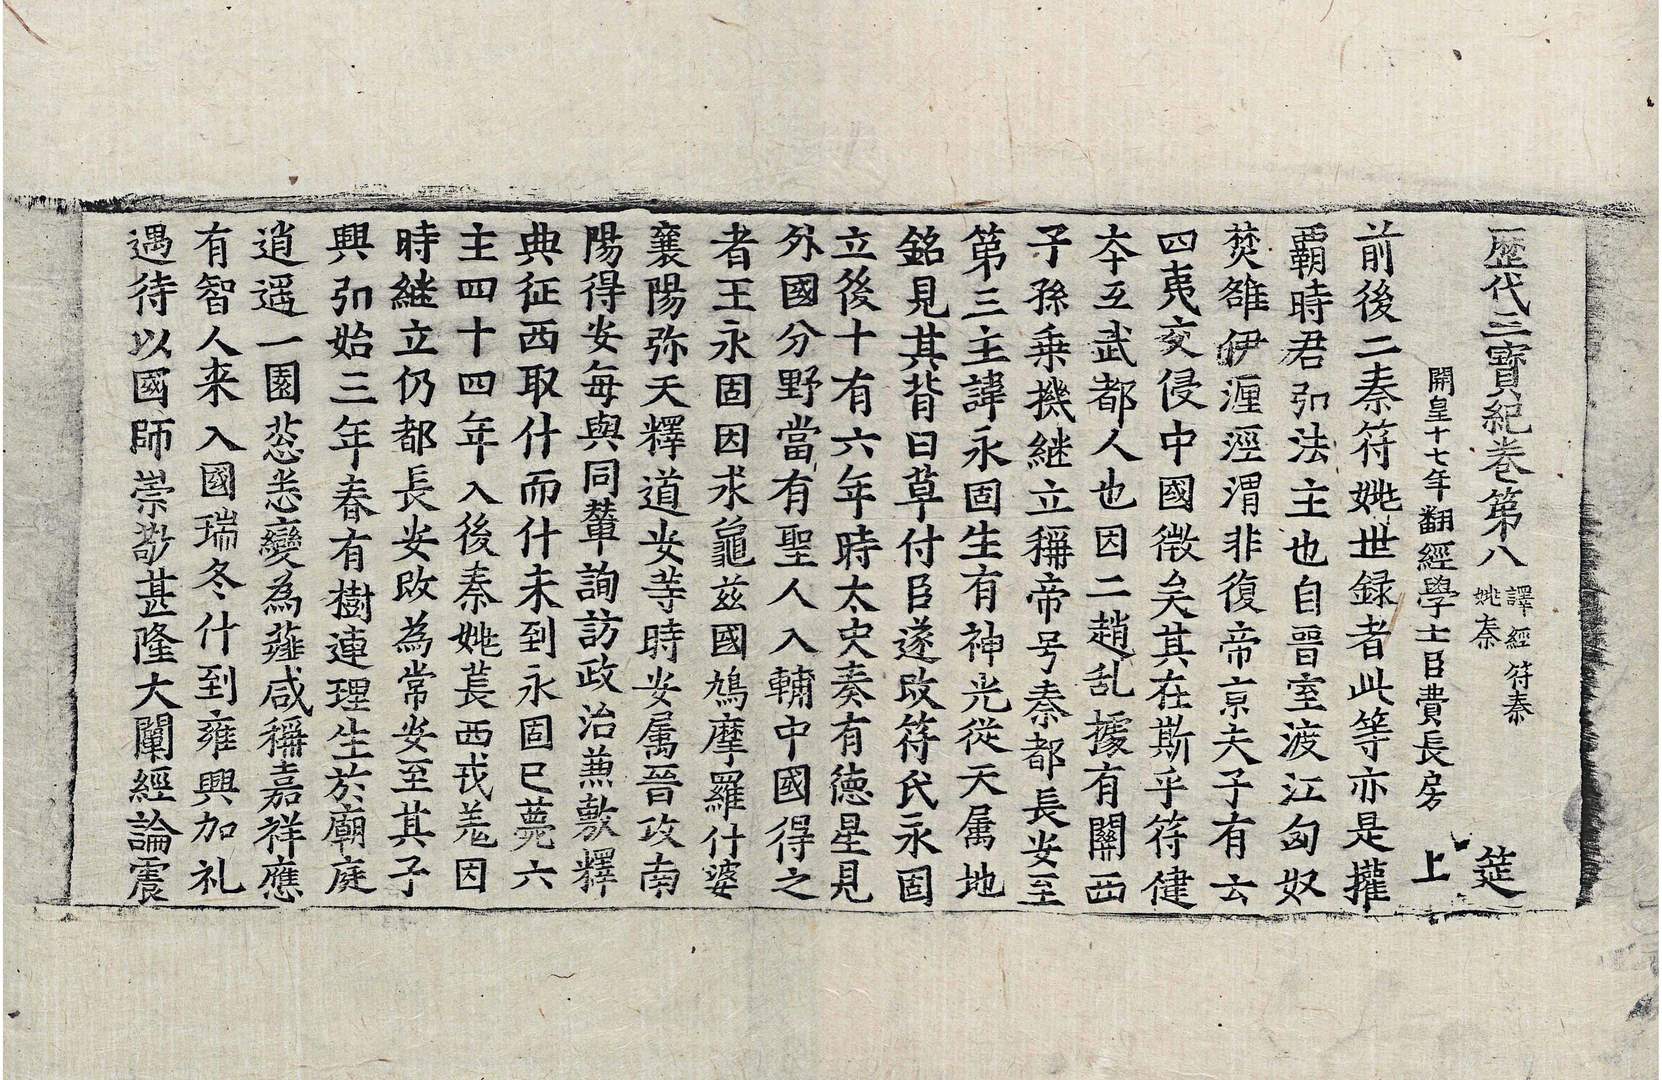 歷代三寶紀卷第八 譯經苻秦姚秦 筵
開皇十七年翻經學士臣費長房上
前後二秦符姚世録者此等亦是攉
覇時君弘法主也自晉室渡江匈奴
焚雒伊瀍涇渭非復帝京夫子有云
四夷交侵中國微矣其在斯乎符健
夲互武都人也因二趙乱據有關西
子孫乗機継立稱帝号秦都長安至
第三主諱永固生有神光從天属地
銘見其背曰草付臣遂改符氏永固
立後十有六年時太史奏有德星見
外國分野當有聖人入輔中國得之
者王永固因求龜茲國鳩摩羅什婆
襄陽弥天釋道安等時安属晉攻南
陽得安每與同輦詢訪政治兼敷釋
典征西取什而什未到永固已薨六
主四十四年入後秦姚萇西戎羌因
時継立仍都長安改為常安至其子
興弘始三年春有樹連理生於廟庭
逍遥一園葱悉變為薤咸稱嘉祥應
有智人来入國瑞冬什到雍興加礼
遇待以國師崇敬甚隆大闡經論震